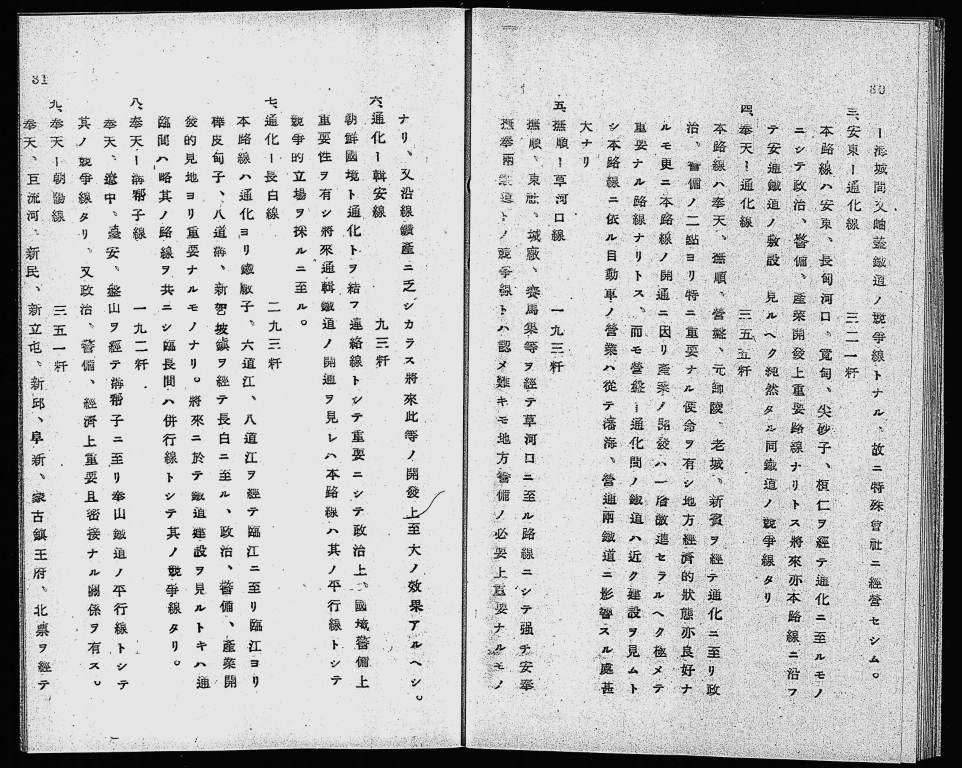 80
ー海城間又岫盖鐵道ノ競爭線トナル、故ニ特殊會社ニ經營セシム。
三、安東ー通化線 三二一粁
本路線ハ安東、長甸河口、寬甸、尖砂子、桓仁ヲ經テ通化ニ至ルモノ
ニシテ政治、警備、產業開發上重要路線ナリトス將來亦本路線ニ沿フ
テ安通鐵道ノ敷設 見ルヘク純然タル同鐵道ノ競爭線タリ
四、奉天ー通化線 三五五粁
本路線ハ奉天、撫順、營盤、元帥陵、老城、新賓ヲ經テ通化ニ至リ政
治、警備ノ二點ヨリ特ニ重要ナル使命ヲ有シ地方經濟的狀態亦良好ナ
ルモ更ニ本路線ノ開通ニ因リ產業ノ開發ハ一層激進セラルヘク極メテ
重要ナル路線ナリトス、而モ營盤ー通化間ノ鐵道ハ近ク建設ヲ見ムト
シ本路線ニ依ル自動車ノ營業ハ從テ瀋海、營通兩鐵道ニ影響スル處甚
大ナリ
五、撫順ー草河口線 一九三粁
撫順、東社、城廠、賽馬集等ヲ經テ草河口ニ至ル路線ニシテ强チ安奉
撫奉兩鐵道トノ競爭線トハ認メ難キモ地方警備ノ必要上重要ナルモノ
81
ナリ、又沿線鑛產ニ乏シカラス將來此等ノ開發上至大ノ效果アルヘシ。
六、通化ー輯安線 九三粁
朝鮮國境ト通化トヲ結フ連絡線トシテ重要ニシテ政治上、國境警備上
重要性ヲ有シ將來通輯鐵道ノ開通ヲ見レハ本路線ハ其ノ平行線トシテ
競爭的立場ヲ採ルニ至ル。
七、通化ー長白線 二九三粁
本路線ハ通化ヨリ鐵廠子、六道江、八道江ヲ經テ臨江ニ至リ臨江ヨリ
樺皮甸子、八道溝、新智坡鎭ヲ經テ長白ニ至ル、政治、警備、產業開
發的見地ヨリ重要ナルモノナリ。將來ニ於テ鐵道建設ヲ見ルトキハ通
臨間ハ略其ノ路線ヲ共ニシ臨長間ハ併行線トシテ其ノ競爭線タリ。
八、奉天ー溝幇子線 一九二粁
奉天、遼中、臺安、盤山ヲ經テ溝幇子ニ至リ奉山鐵道ノ平行線トシテ
其ノ競爭線タリ。又政治、警備、經濟上重要且密接ナル關係ヲ有ス。
九、奉天ー朝陽線 三五一粁
奉天、巨流河、新民、新立屯、新邱、阜新、蒙古鎭王府、北票ヲ經テ